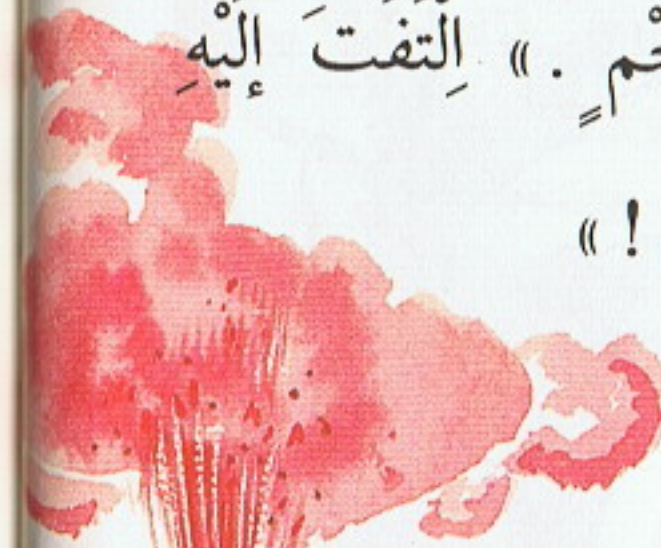 . » اِلْتَفَتَ إِلَيْهِ
! »